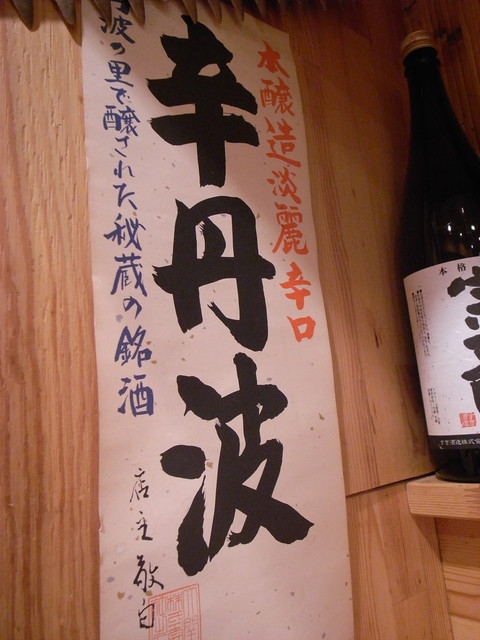 本醸造淡麗辛口
辛丹波
波の里で醸された秘蔵の銘酒
店主敬白
本格